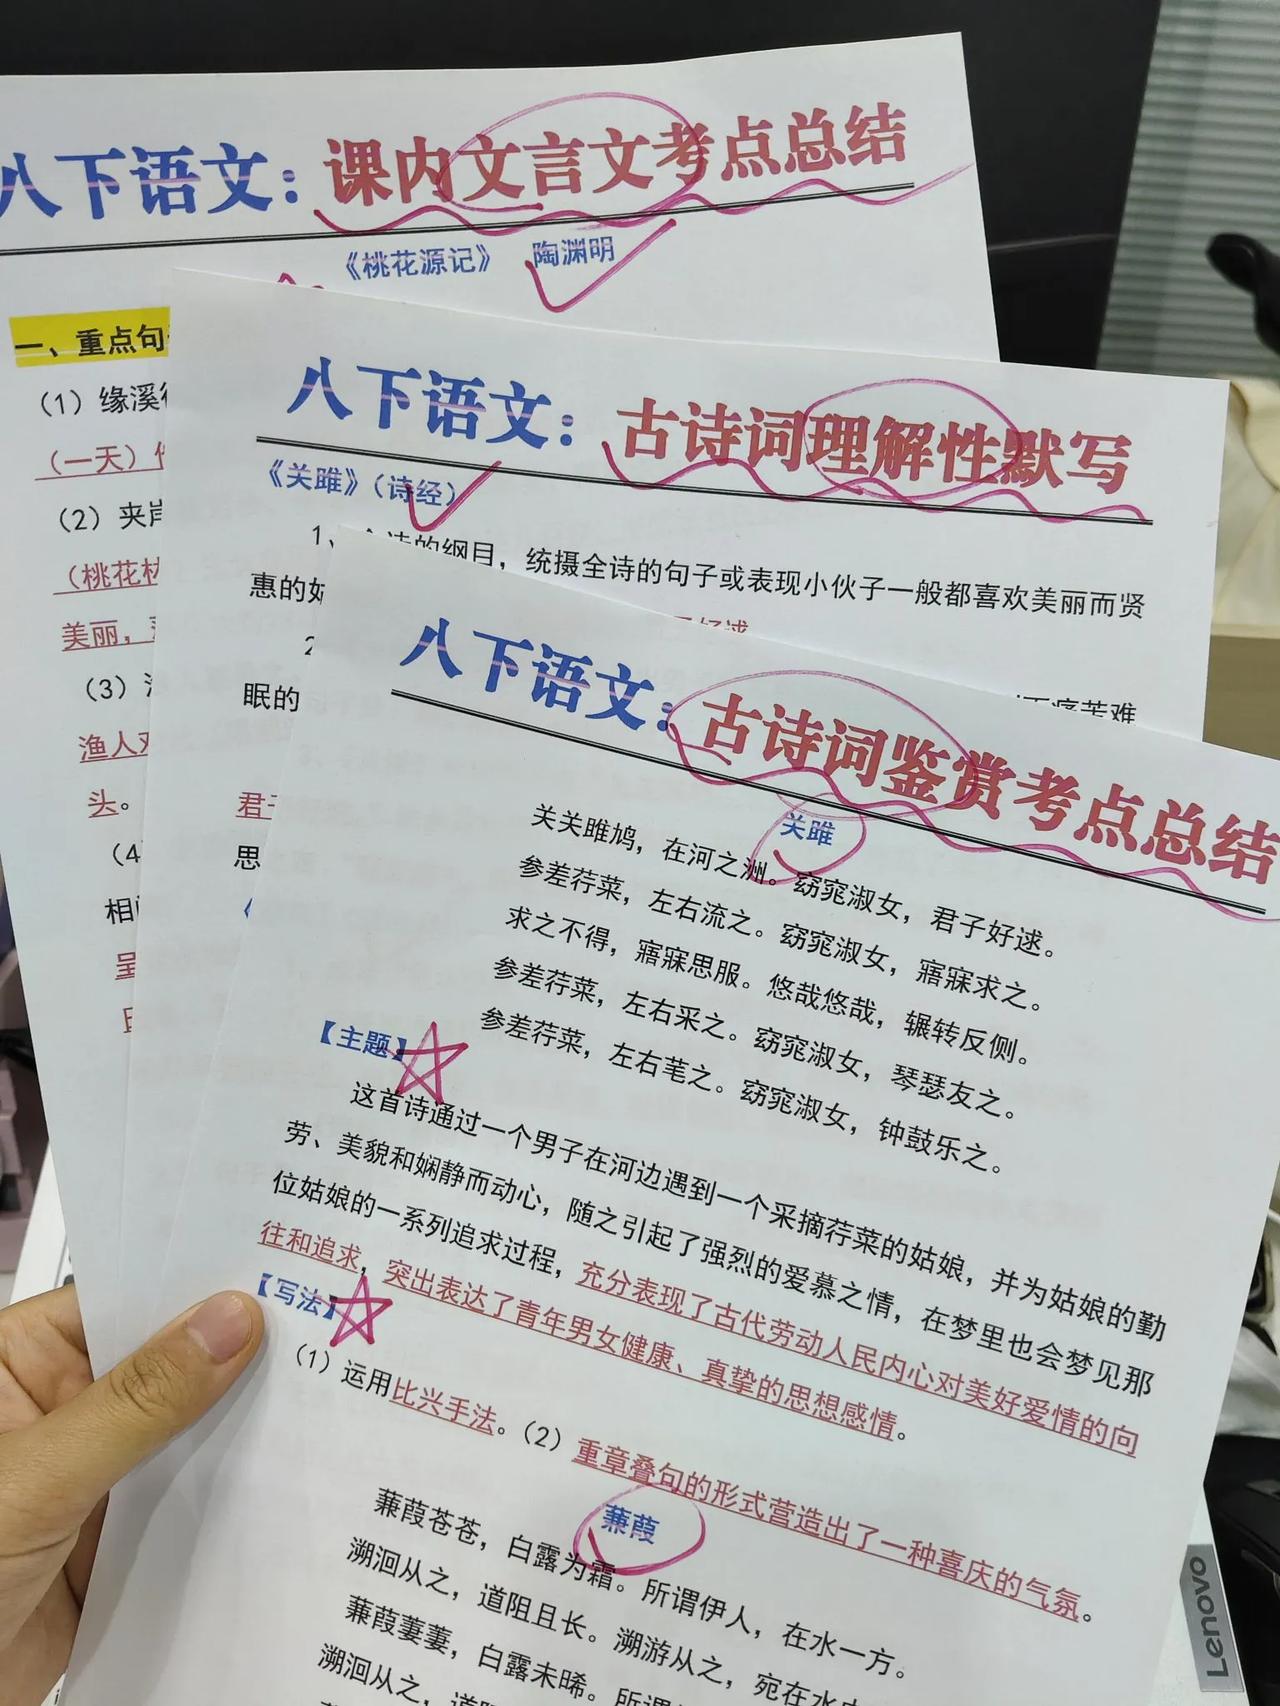 八下语文：课内文言文考点总结
《桃花源记》 陶渊明
一、重点句
（1）缘溪
（一天）
（2）夹岸
（桃花林
美丽，
（3）
渔人
头。
（4
相
八下语文：古诗词理解性默写
《关雎》（诗经）
1、全诗的纲目，统摄全诗的句子或表现小伙子一般都喜欢美丽而贤
惠的姑
好逑
2
痛苦难
眠的
君子
思
八下语文：古诗词鉴赏考点总结
关雎
关关雎鸠，在河之洲。窈窕淑女，君子好逑。
参差荇菜，左右流之。窈窕淑女，寤寐求之。
求之不得，寤寐思服。悠哉悠哉，辗转反侧。
参差荇菜，左右采之。窈窕淑女，琴瑟友之。
参差荇菜，左右芼之。窈窕淑女，钟鼓乐之。
【主题】
这首诗通过一个男子在河边遇到一个采摘荇菜的姑娘，并为姑娘的勤
劳、美貌和娴静而动心，随之引起了强烈的爱慕之情，在梦里也会梦见那
位姑娘的一系列追求过程，充分表现了古代劳动人民内心对美好爱情的向
往和追求，突出表达了青年男女健康、真挚的思想感情。
【写法】
（1）运用比兴手法。（2）重章叠句的形式营造出了一种喜庆的气氛。
蒹葭
蒹葭苍苍，白露为霜。所谓伊人，在水一方。
溯洄从之，道阻且长。溯游从之，宛在水
蒹葭萋萋，白露未晞。所谓
溯洄从之，道
Lenovo